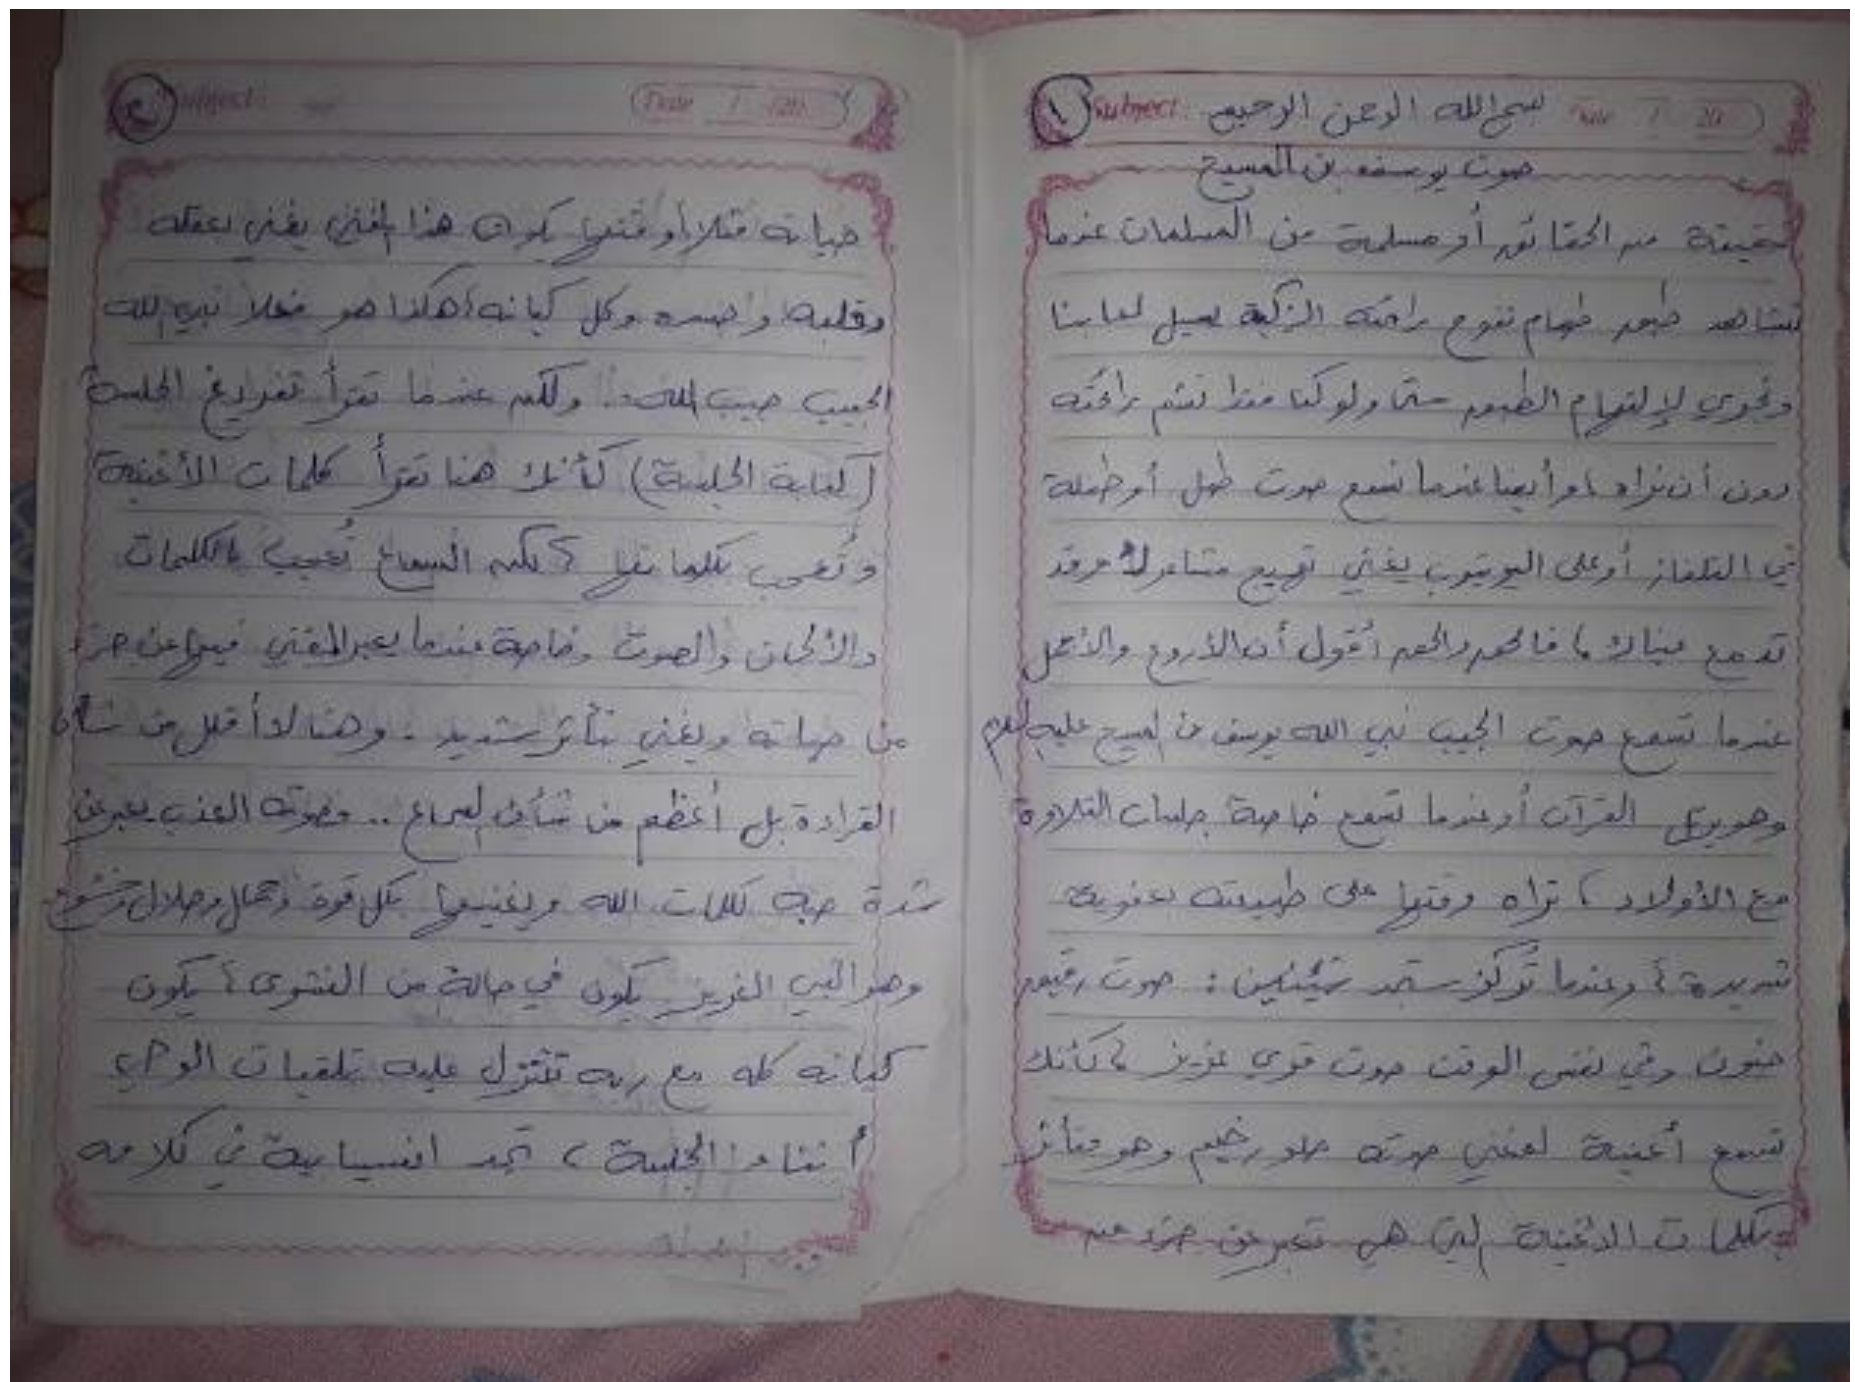 ١ Subject: بسم الله الرحمن الرحيم Date / / 20
صوت يوسف بن المسيح
حقيقة من الحقائق أو مسلمة من المسلمات عندما
نشاهد طبق طعام تفوح رائحته الزكية يسيل لعابنا
لإلتهام الطبق حتى ولو كنا فقط نشم رائحته
دون أن نراه، وأيضا عندما نسمع صوت طفل أو طفلة
في التلفاز أو على اليوتيوب يغني تهيج مشاعرك وقد
تدمع عيناك، فالحق والحق أقول أن الأروع والأجمل
عندما تسمع صوت الحبيب نبي الله يوسف بن المسيح عليه السلام
وهو يرتل القرآن أو عندما تسمع خاصة جلسات التلاوة
مع الأولاد، تراه وقتها على طبيعته بعفوية
شديدة، وعندما تُركز ستجد شيئين: صوت رقيق
حنون وفي نفس الوقت صوت قوي عزيز، كأنك
تسمع أغنية لمغني صوته حلو رخيم وهو متأثر
بكلمات الأغنية التي هي تعبر عن جزء من
٢ Subject: Date / / 20
حياته مثلا أو قتها يكون هذا المغني يغني بعقله
وقلبه وجسده وكل كيانه، هكذا هو فعلا نبي الله
الحبيب حبيب الله.. ولكن عندما تقرأ تفريغ الجلسة
(كتابة الجلسة) كأنك هنا تقرأ كلمات الأغنية
وتُعجب بكلماتها، لكن السماع تُعجب بالكلمات
والألحان والصوت وخاصة عندما يعبر المغني فيها عن جزء
من حياته ويغني بتأثر شديد. وهنا لا أقلل من شأن
القراءة بل أعظم من شأن السماع.. فصوته العذب يعبر عن
شدة حبه لكلمات الله ويغنيها بكل قوة وجمال وجلال وخشوع
وهو النبي العزيز يكون في حالة من النشوى، يكون
كيانه كله مع ربه تتنزل عليه تلقيات الوحي
أثناء الجلسة، تجد انسيابية في كلامه